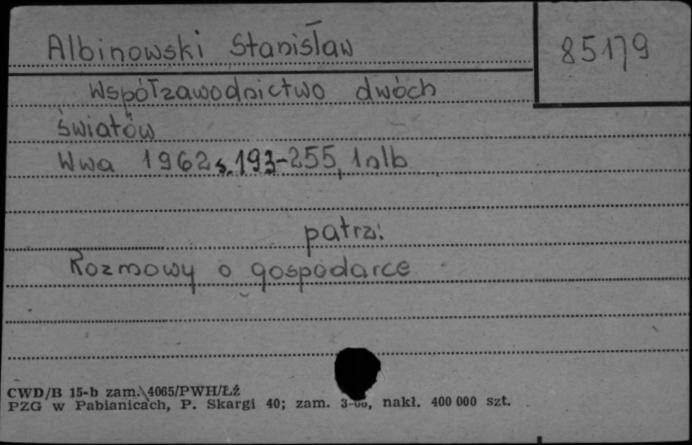 Albinowski Stanisław
85179
Współzawodnictwo dwóch
światów
Wwa 1962 s. 193-255, 1nlb
patrz:
Rozmowy o gospodarce
CWD/B 15-b zam. 4065/PWH/ŁŻ
PZG w Pabianicach, P. Skargi 40; zam. nakł. 400 000 szt.